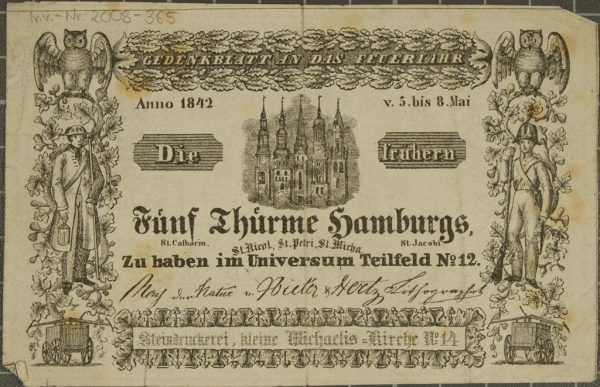 Inv.-Nr. 2008-365
GEDENKBLATT AN DAS FEUERJAHR
Anno 1842 v. 5. bis 8. Mai
Die frühern
Fünf Thürme Hamburgs,
St. Catharin. St. Nicol, St. Petri, St. Micha St. Jacobi
Zu haben im Universum Teilfeld No 12.
Nach der Natur v. Bieler & Hertz Lithographirt
Steindruckerei, kleine Michaelis=Kirche No 14